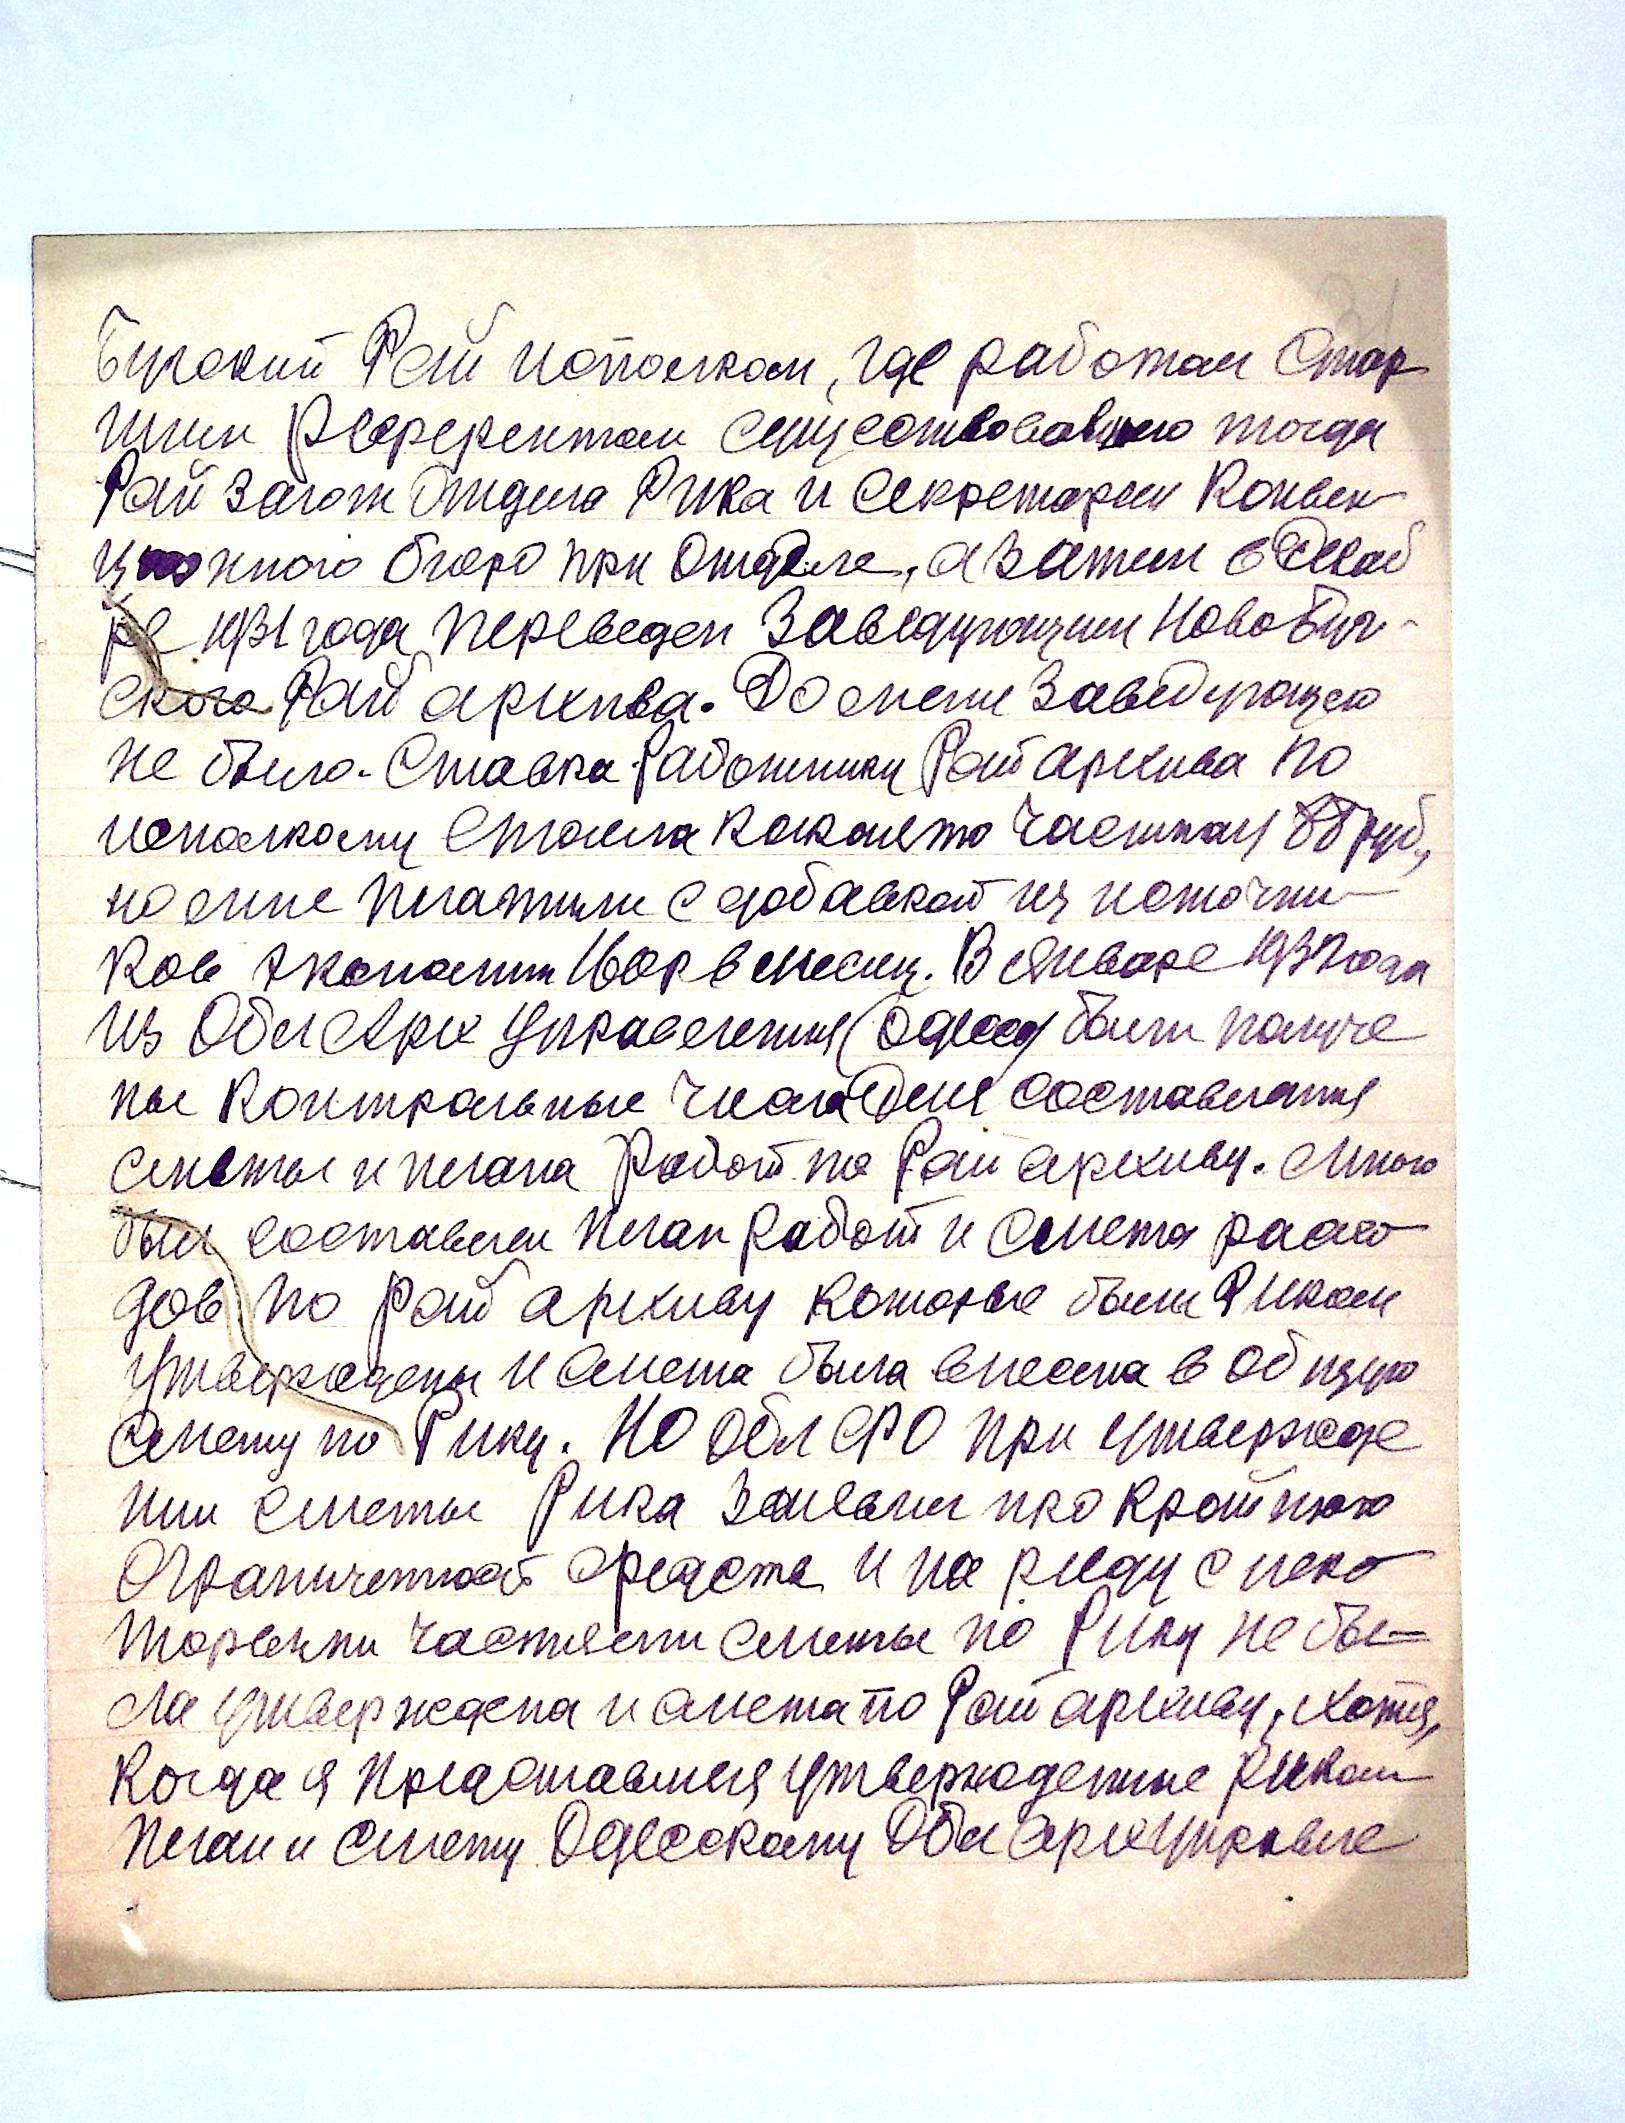 Бугский Рай исполком, где работал Стар
шим Референтом существовавшего тогда
Рай Загот Отдела Рика и секретарем Конвен
ционного бюро при Отделе, а затем в декаб
ре 1931 года переведен Заведующим НовоБуг-
ского Рай архива. До меня Заведующего
не было. Ставка Работнику Рай архива по
исполкому стояла какая то частная руб,
но мне платили с добавкой из источни-
ков экономии 160 р в месяц. В январе 1932 года
из Обл Арх Управления (Одесса) были получе
ны Контрольные числа для составления
сметы и плана Работ по Рай архиву. Мною
был составлен план работ и смета расхо
дов по рай архиву которые были Риком
утверждены и смета была внесена в общую
смету по Рику. Но Обл ФО при утвержде
нии сметы Рика Заявил про крайнюю
ограниченность средств и на ряду с неко
торыми частями сметы по Рику не бы-
ла утверждена и смета по Рай архиву, хотя,
когда я представлял утвержденные риком
план и смету Одесскому Обл архуправле